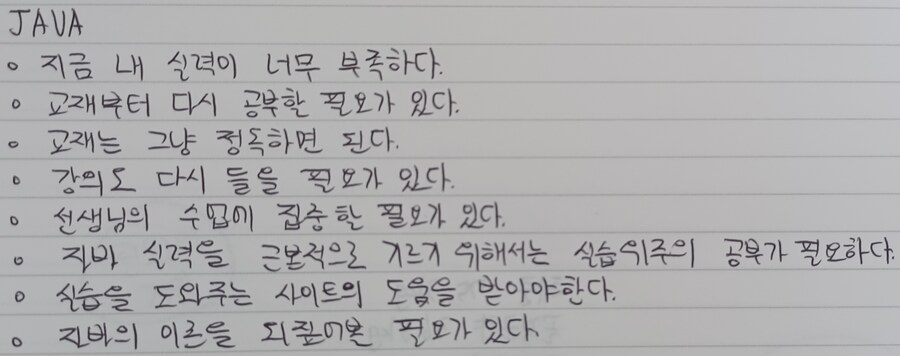 JAVA
◦ 지금 내 실력이 너무 부족하다.
◦ 교재부터 다시 공부할 필요가 있다.
◦ 교재는 그냥 정독하면 된다.
◦ 강의도 다시 들을 필요가 있다.
◦ 선생님의 수업에 집중할 필요가 있다.
◦ 자바 실력을 근본적으로 기르기 위해서는 실습위주의 공부가 필요하다.
◦ 실습을 도와주는 사이트의 도움을 받아야한다.
◦ 자바의 이론을 되짚어볼 필요가 있다.